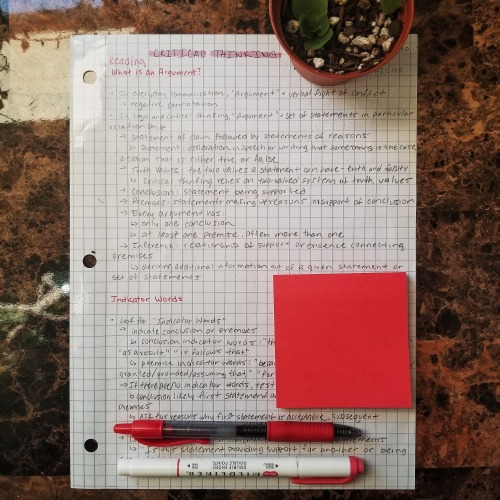 CRITICAL THINKING
Reading
What is an Argument?
• In everyday communication, "Argument" = verbal fight of conflict
→ negative connotation
• In logic and critical thinking, "Argument" = set of statements in particular
relationship
→ statement of claim followed by statements of reasons
↳ Statement: declaration in speech or writing that something is the case
a claim that is either true or false
→ Truth values: the two values a statement can have - truth and falsity
↳ Critical thinking relies on two-valued system of truth values
→ Conclusion: statement being supported
→ Premises: statements making up reasons in support of conclusion
→ Every argument has:
↳ only one conclusion
↳ at least one premise, often more than one
→ Inference: relationship of support or evidence connecting
premises
↳ deriving additional information out of a given statement or
set of statements
Indicator Words
• Look for "Indicator Words"
→ indicate conclusion or premises
↳ conclusion indicator words: "th
"as a result" "it follows that"
↳ premise indicator words: "beca
granted/grounded/assuming that" "for
→ If there are no indicator words, test
↳ conclusion likely first statement a
premises
↳ Ask for reasons why first statement is acceptable, subsequent
ements
↳ Is this statement providing support for another or being
MILDLINER
DOUBLE ENDED
DOUBLE POINTE